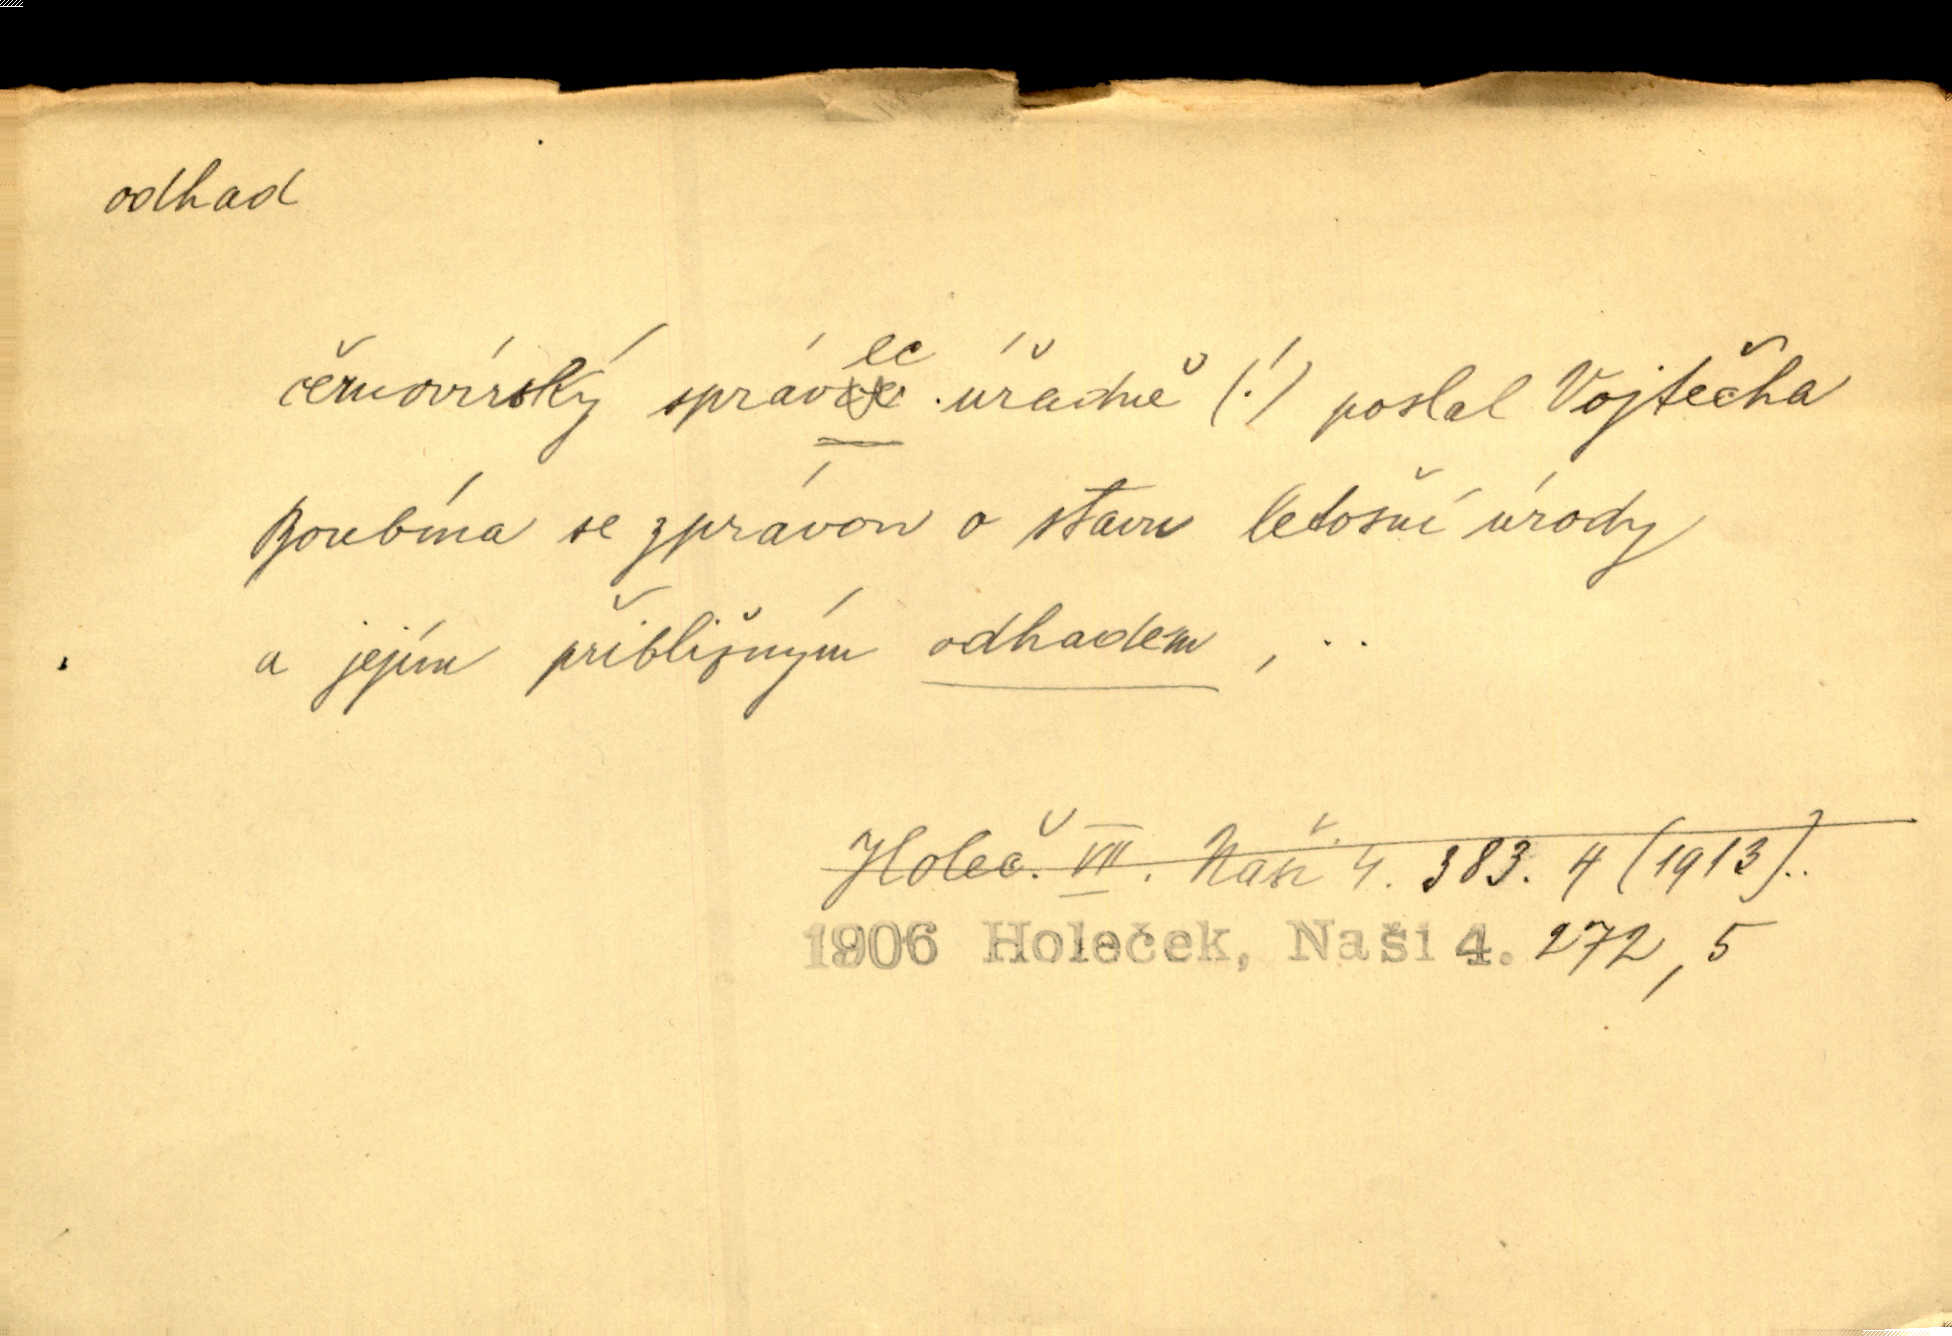 odhad
černovírský správec úřadně (!) poslal Vojtěcha
Boubína se zprávou o stavu letošní úrody
a jejím přibližným odhadem, ..
Holeč. VII. Naši 4. 383. 4 (1913)..
1906 Holeček, Naši 4. 272, 5